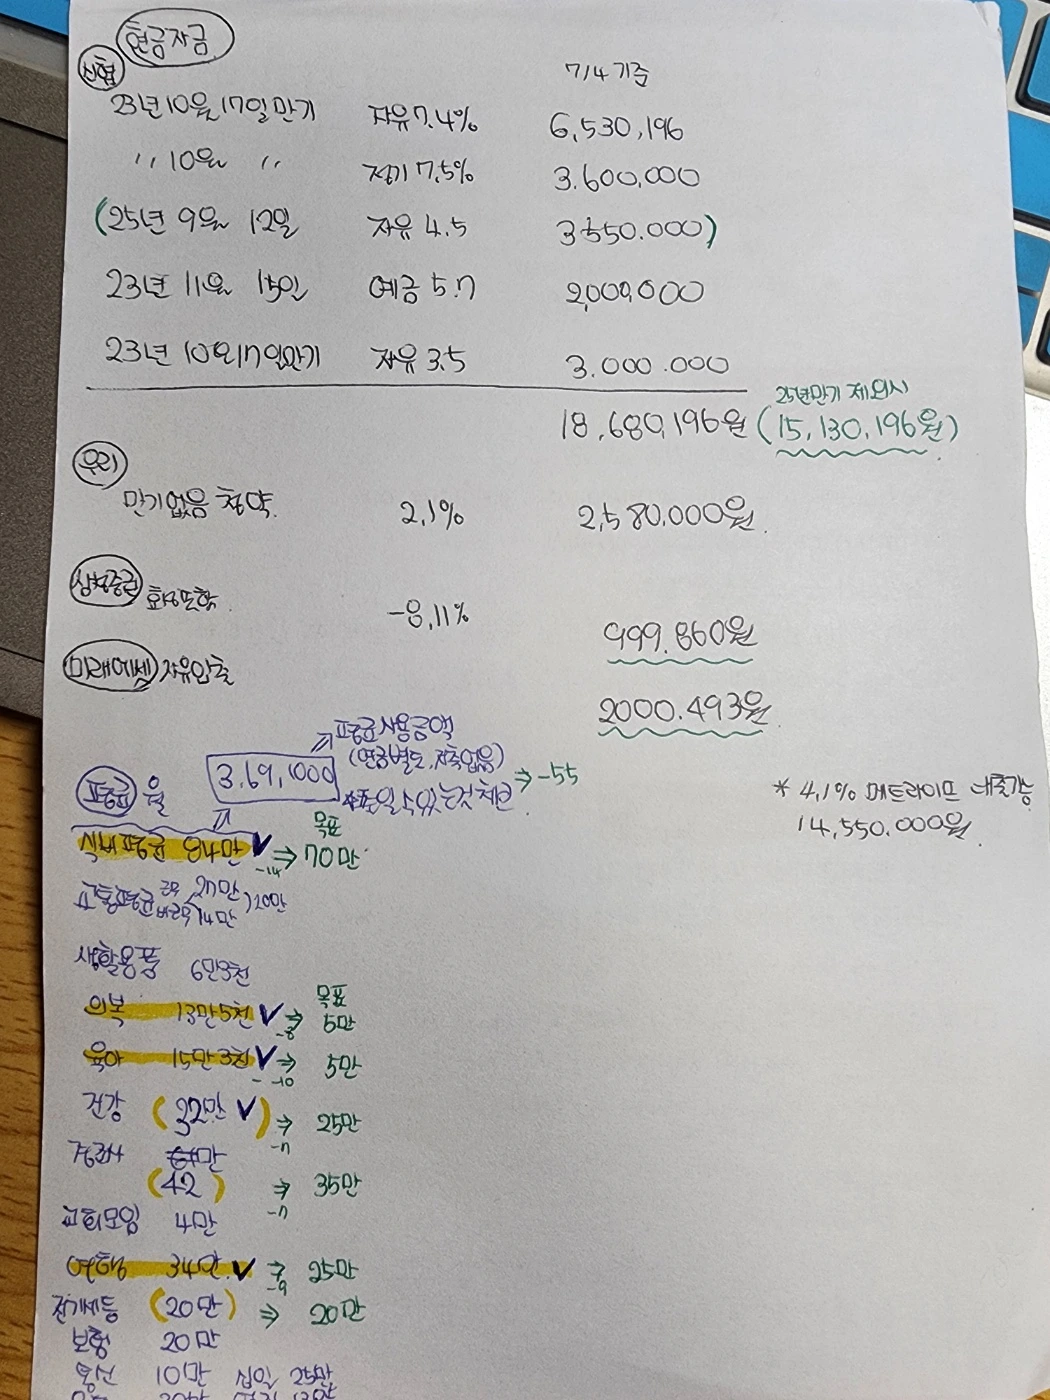 현금자금
신협
7/4 기준
23년 10월 17일 만기 자유 7.4% 6,530,196
〃 10월 〃 정기 7.5% 3.600,000
(25년 9월 12일 자유 4.5 3550.000)
23년 11월 15일 예금 5.7 2,000,000
23년 10월 17일만기 자유 3.5 3.000.000
25년만기 제외시
18,680,196원 (15,130,196원)
우리
만기없음 청약 2.1% 2,580,000원
삼성증권 -8.11% 999.860원
미래에셋 자유입출 2000.493원
평균사용금액
(연금별도, 저축없음)
평균 월 3,69,1000 줄일 수 있는것 체크 ⇒ -55
* 4.1% 메트라이프 대출가능
14,550.000원
목표
식비평균 84만 V -14 ⇒ 70만
교통평균 27만 14만 20만
생활용품 6만3천
목표
의복 13만5천 V -8 ⇒ 5만
육아 15만3천 V -10 ⇒ 5만
건강 (32만 V) -7 ⇒ 25만
경조사 만
(42) -7 ⇒ 35만
교회모임 4만
여행 34만 V -9 ⇒ 25만
전기세등 (20만) ⇒ 20만
보험 20만
통신 10만 십일 25만